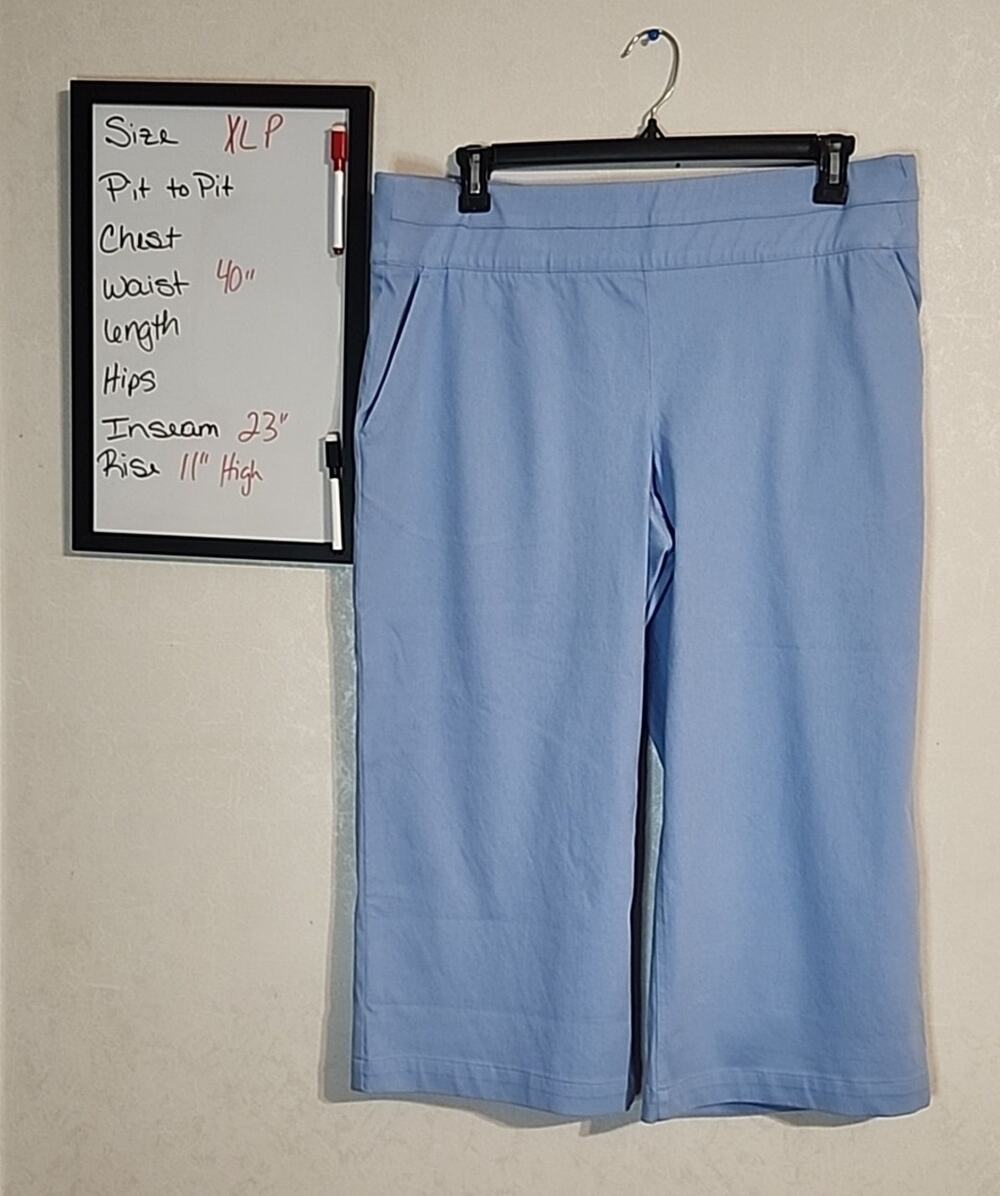 Size XL P
Pit to Pit
Chest
Waist 40"
Length
Hips
Inseam 23"
Rise 11" High